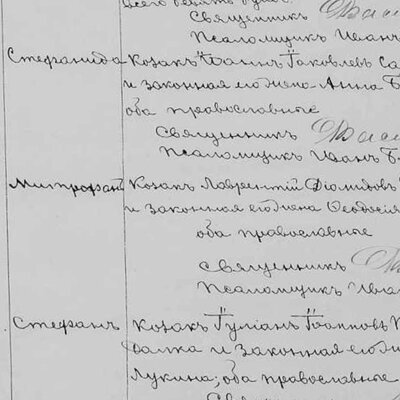 Священникъ
Псаломщикъ Иван
Стефанида Козакъ Іоаннъ Іаковлевъ Са
и законная его жена Анна Б
оба православные
Священникъ
Псаломщикъ Иванъ Б
Митрофанъ Козакъ Лаврентій Діомидовъ
и законная его жена Феодосія
оба православные
Священникъ
Псаломщикъ Ива
Стефанъ Козакъ Іуліанъ Іоанновъ
и законная его
Лукина; оба православные
Священникъ